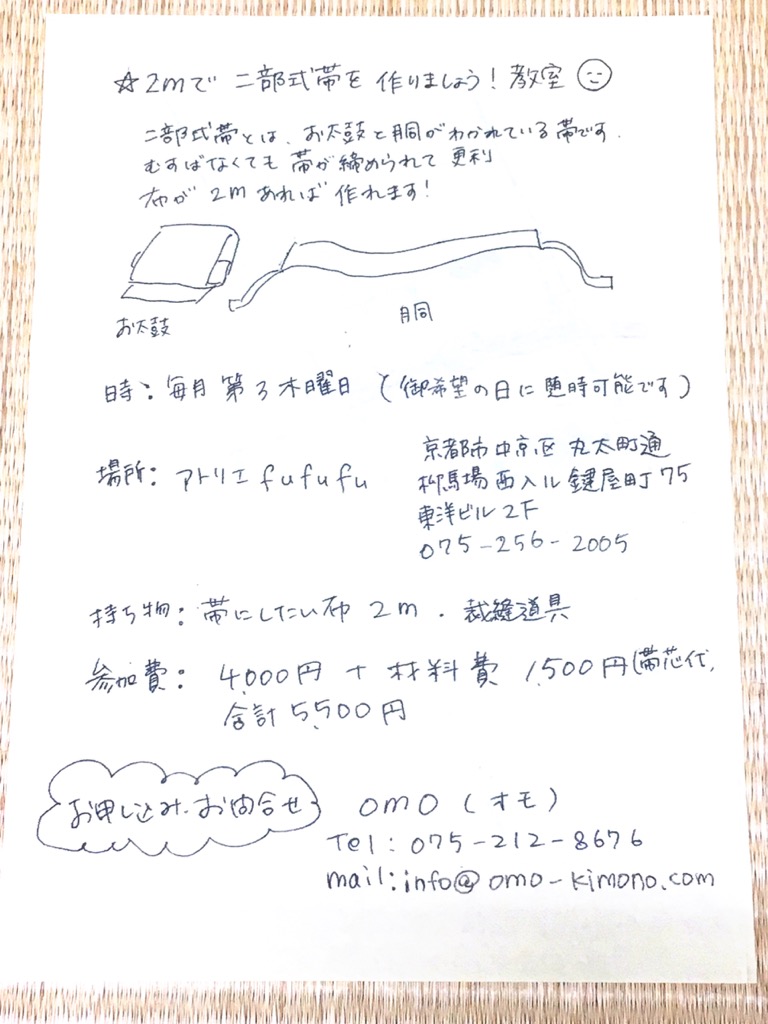 ☆2mで 二部式帯を 作りましょう！教室
二部式帯とは、お太鼓と胴がわかれている帯です.
むすばなくても 帯が締められて 更利
布が 2m あれば 作れます!
お太鼓
胴
時: 毎月 第3木曜日 (御希望の日に随時可能です)
場所: アトリエ fufufu
京都市中京区 丸太町通
柳馬場西入ル 鍵屋町75
東洋ビル2F
075-256-2005
持ち物: 帯にしたい布 2m . 裁縫道具
参加費: 4,000円 + 材料費 1,500円(帯芯代,
合計5,500円
お申し込み、お問合せ
omo (オモ)
Tel: 075-212-8676
mail:info@omo-kimono.com